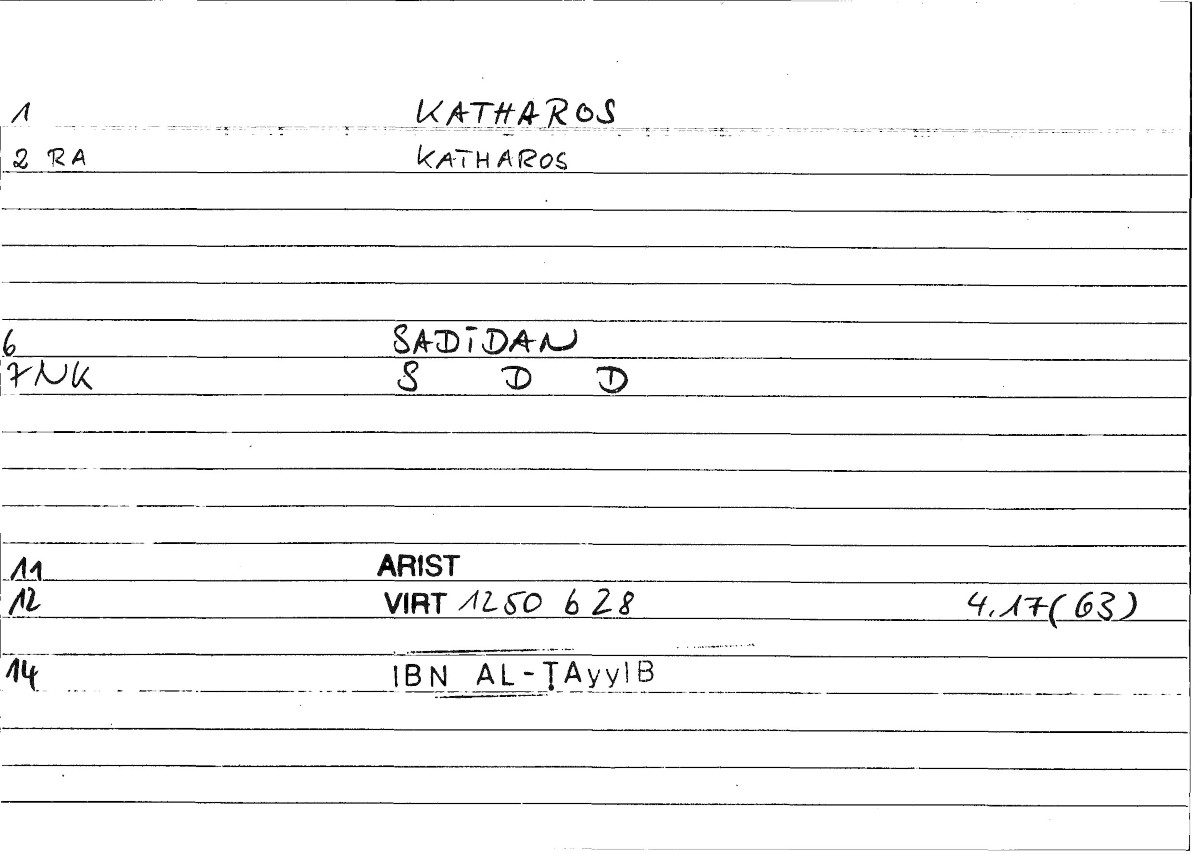 1 KATHAROS
2 RA KATHAROS
6 SADĪDAN
7 NK S D D
11 ARIST
12 VIRT 1250 b 28 4.17(63)
14 IBN AL-ṬAyyIB